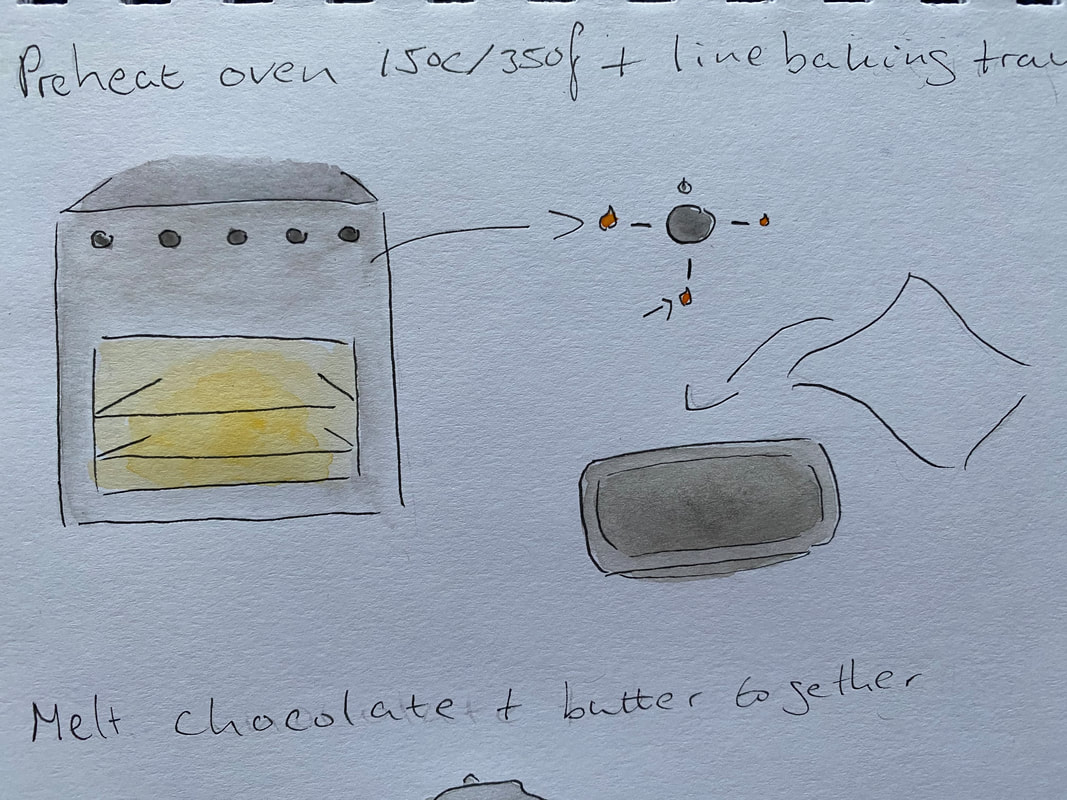 Preheat oven 150c/350f + line baking tray
Melt chocolate + butter together